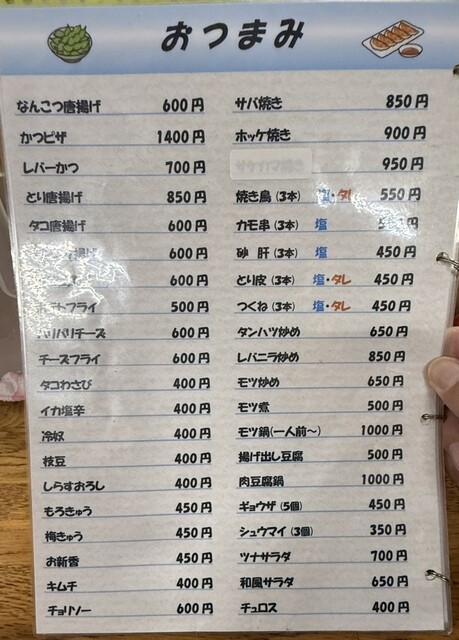 おつまみ
なんこつ唐揚げ 600円
かつピザ 1400円
レバーかつ 700円
とり唐揚げ 850円
タコ唐揚げ 600円
唐揚げ 600円
600円
フライ 500円
パリパリチーズ 600円
チーズフライ 600円
タコわさび 400円
イカ塩辛 400円
冷奴 400円
枝豆 400円
しらすおろし 400円
もろきゅう 450円
梅きゅう 450円
お新香 450円
キムチ 400円
チョリソー 600円
サバ焼き 850円
ホッケ焼き 900円
950円
焼き鳥(3本) 塩・タレ 550円
カモ串(3本) 塩 円
砂肝(3本) 塩 450円
とり皮(3本) 塩・タレ 450円
つくね(3本) 塩・タレ 450円
タンハツ炒め 650円
レバニラ炒め 850円
モツ炒め 650円
モツ煮 500円
モツ鍋(一人前〜) 1000円
揚げ出し豆腐 500円
肉豆腐鍋 1000円
ギョウザ(5個) 450円
シュウマイ(3個) 350円
ツナサラダ 700円
和風サラダ 650円
チュロス 400円